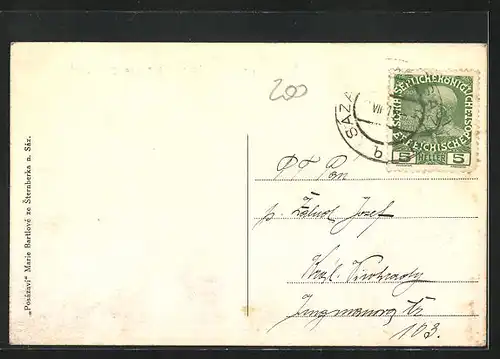 200
SÁZA
VII
b
KAISERLICHE KÖNIGLICHE ÖSTERREICHISCHE
5 HELLER 5
PT Pan
p. Josef
Král. Vinohrady
Jungmanova tř.
103.
„Posázaví" Marie Bartlové ze Šternberka n. Sáz.